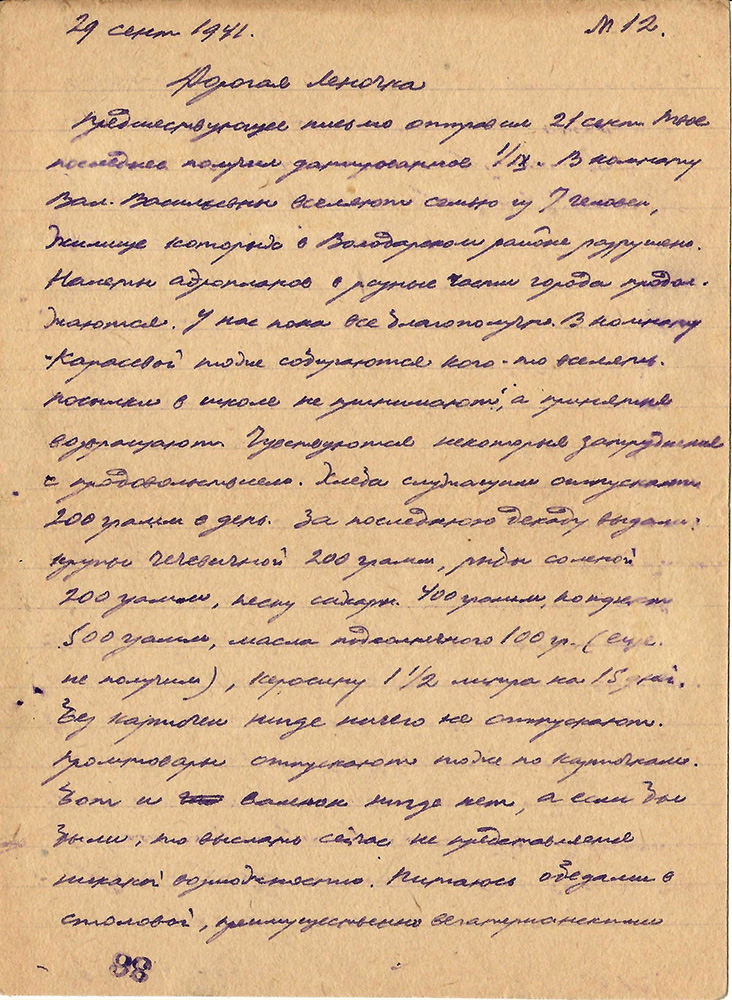 29 сент 1941.
№ 12.
Дорогая Леночка
Предшествующее письмо отправил 21 сент. Твое
последнее получил датированное 1/IX. В комнату
Вал. Васильевны вселяют семью из 7 человек,
жилище которых в Володарском районе разрушено.
Налеты аэропланов в разные части города продол-
жаются. У нас пока все благополучно. В комнату
Карасевой тоже собираются кого-то вселять.
Посылки в школе не принимают, а принятые
возвращают. Чувствуются некоторые затруднения
с продовольствием. Хлеба служащим отпускают
200 грамм в день. За последнюю декаду выдали:
крупы чечевичной 200 грамм, рыбы соленой
200 грамм, песку сахарн. 400 грамм, кондит
500 грамм, масла подсолнечного 100 гр. (еще
не получил), керосину 1 1/2 литра на 15 дней.
Без карточек нигде ничего не отпускают.
Промтовары отпускают тоже по карточкам.
Бот и валенок нигде нет, а если бы
были, то выслать сейчас не представляется
никакой возможностью. Питаюсь обедами в
столовой, преимущественно вегатерианскими
88